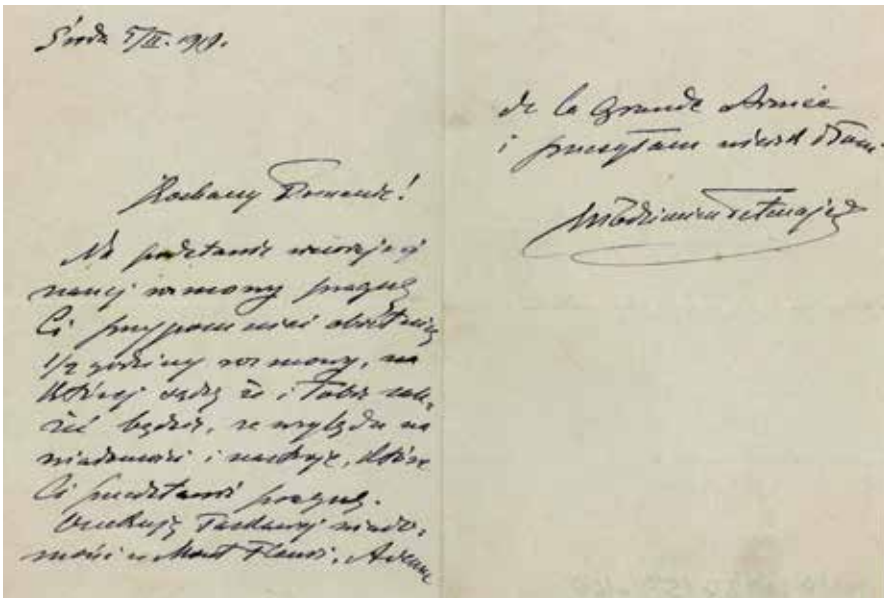 Środa 5/II. 1919.
Kochany Romanie!
Na podstawie wczorajszej
naszej rozmowy pragnę
Ci przypomnieć obietnicę
1/2 godziny rozmowy, na
której sądzę że i Tobie zale-
żeć będzie, ze względu na
wiadomości i nastroje, które
Ci przedstawić pragnę.
Oczekuję łaskawej wiado-
mości w Mont Fleuri, Avenue
de la Grande Armée
i przesyłam uścisk dłoni
Włodzimierz Tetmajer